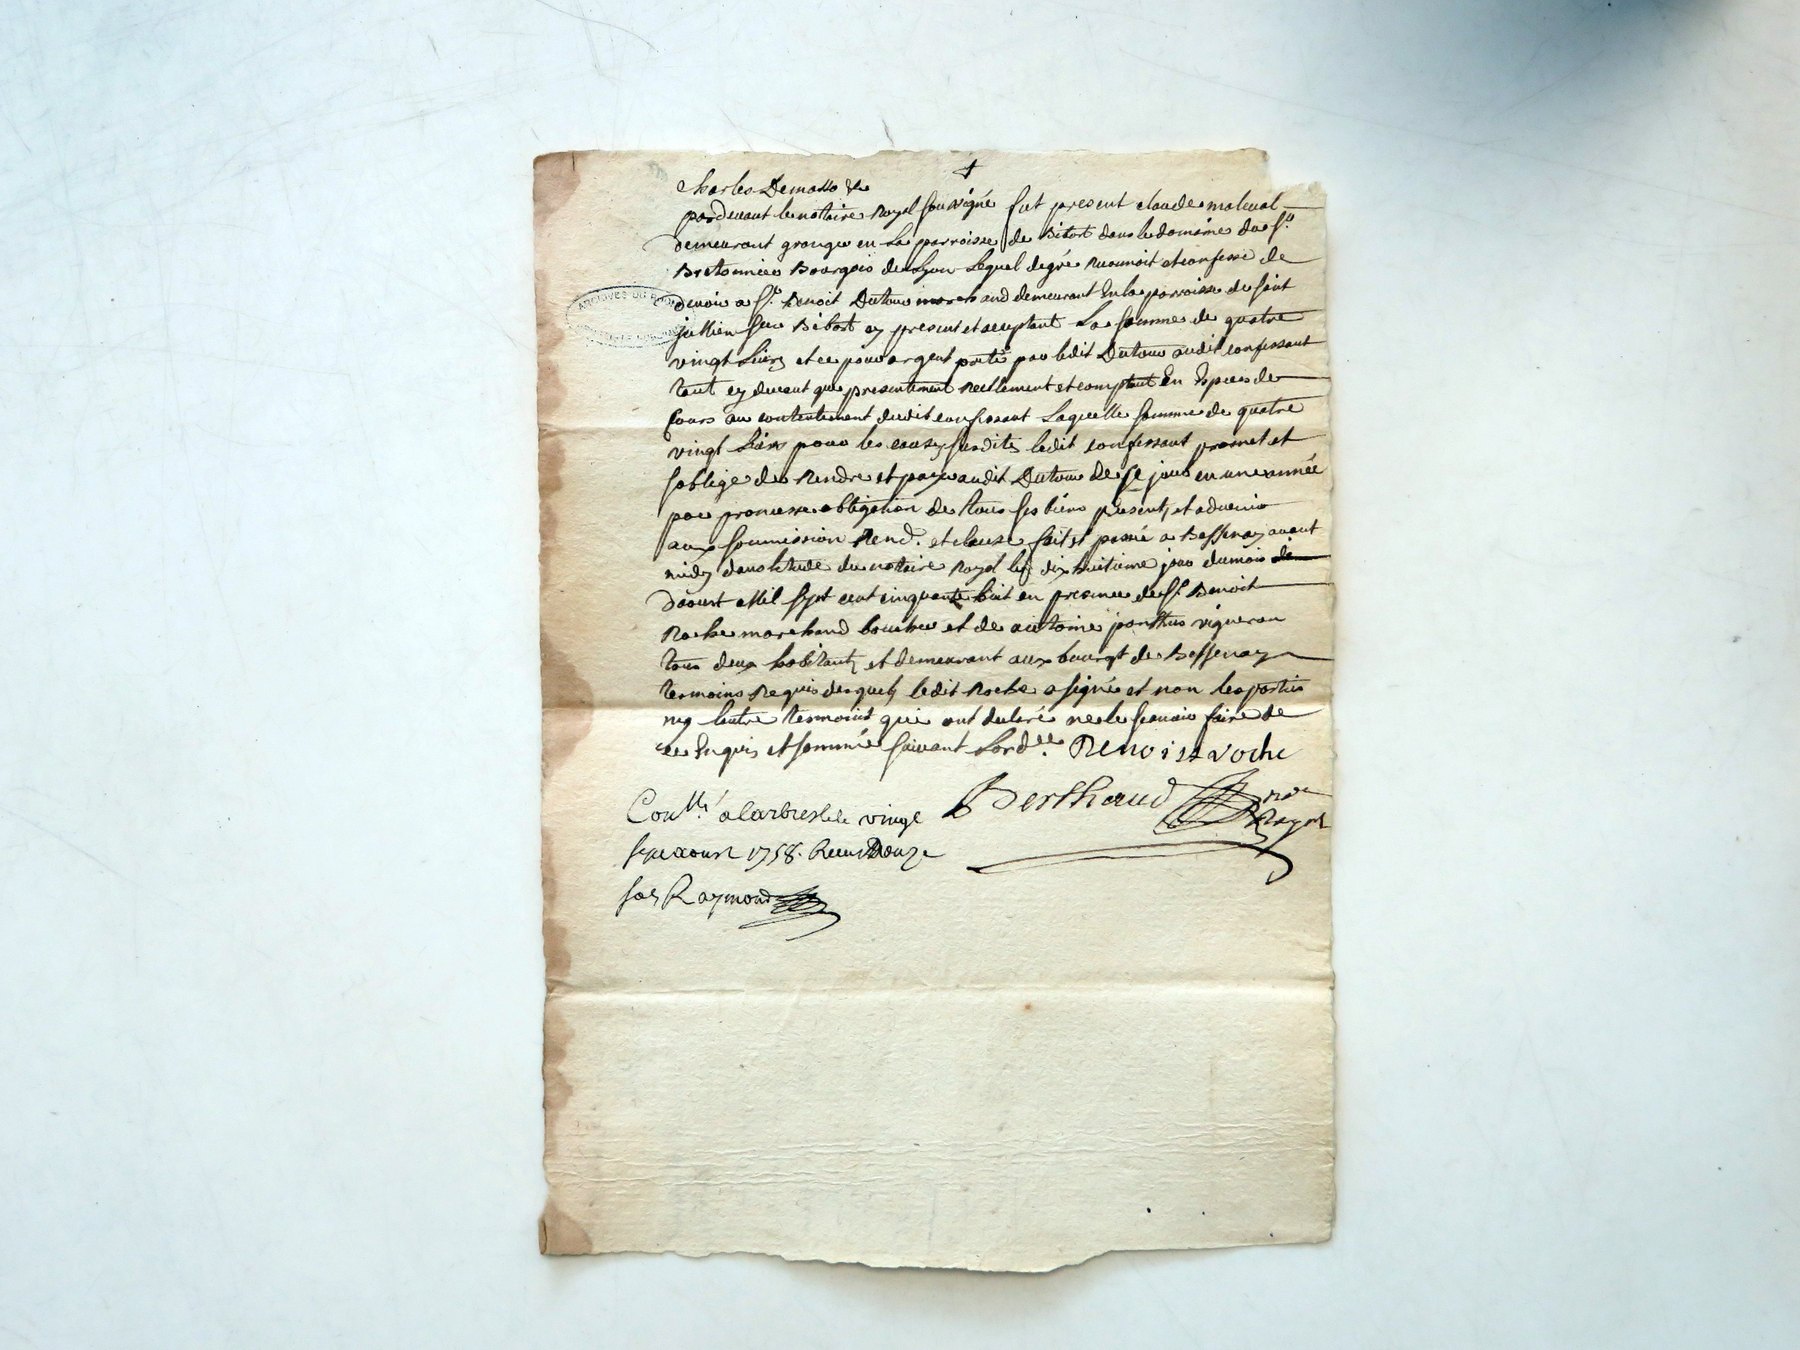 ✝
Charles Demasso &c
pardevant le notaire Royal soussigné fut present claude maluval
demeurant granger en La parroisse de Bibost dans le domaine du Sr.
Bretonnier Bourgois de Lyon Lequel de gré Reconnoit et confesse de
devoir a Sr. Benoit Dutour marchand demeurant En la parroisse de saint
jullien sur Bibost cy present et acceptant La somme de quatre
vingt Livres et ce pour argent preté par ledit Dutour audit confessant
tant cy devant que presentement reellement et comptant En Especes de
Cours au contentement dudit confessant Laquelle somme de quatre
vingt Livres pour les causes susdites ledit confessant promet et
soblige de Rendre et payer audit Dutour de ce jour en une année
par promesse obligation de tous ses biens presents et advenir
aux soumission Renon. et clause fait et passé a Bessenay avant
midy dans letude du notaire Royal le dix huitieme jour du mois
daoust Mil sept cent cinquante huit en presence de Sr. Benoit
Roche marchand boucher et de antoine ponthus vigneron
tous deux habitants et demeurant aux bourgt de Bessenay
temoins Requis desquels ledit Roche a signé et non les parties
ny lautre temoins qui ont declaré ne le scavoir faire de
ce Enquis et sommé suivant Lordce. Benoist roche
Berthaud nore Royal
Conllé a larbresle le vingt
sept aoust 1758. Recu Douze
sols Raymond
ARCHIVES DU RHONE